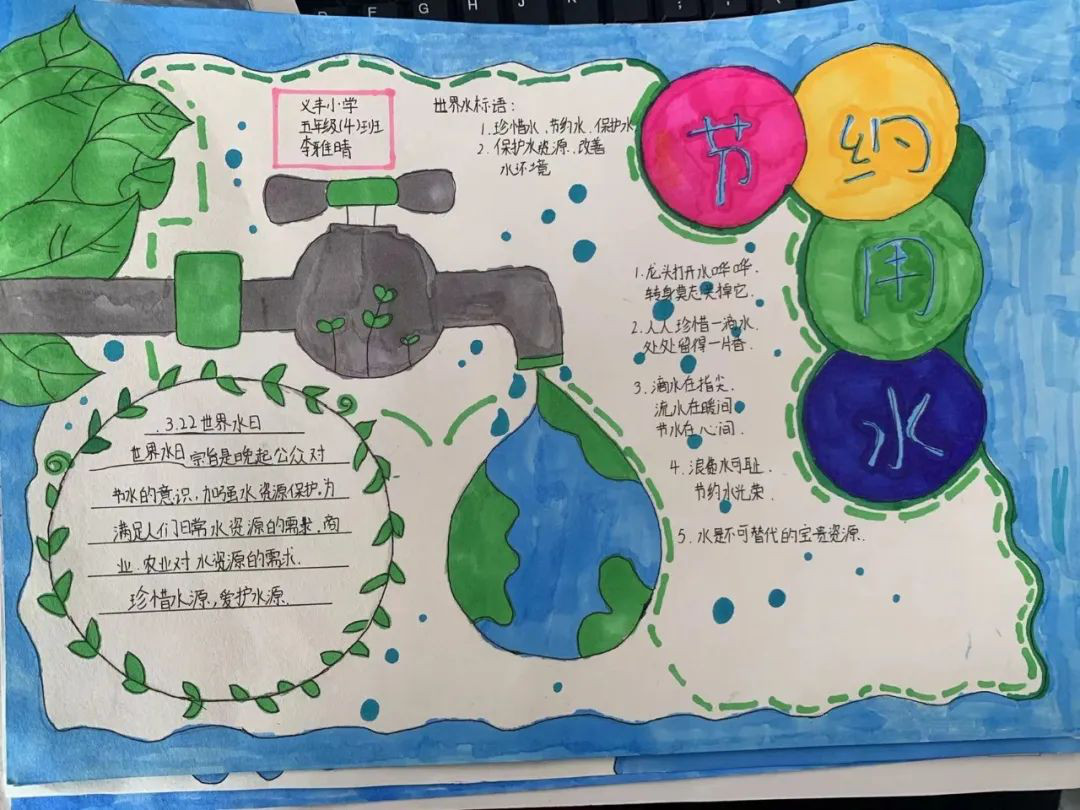 F G H J K
节
约
用
水
义丰小学
五年级(4)班
李雅晴
世界水标语:
1.珍惜水.节约水.保护水
2.保护水资源.改善
水环境
1.龙头打开水哗哗.
转身莫忘关掉它.
2.人人珍惜一滴水.
处处留得一片春.
3.滴水在指尖.
流水在瞬间
节水在心间.
4.浪费水可耻.
节约水光荣.
5.水是不可替代的宝贵资源.
.3.22世界水日
世界水日宗旨是唤起公众对
节水的意识,加强水资源保护.为
满足人们日常水资源的需求.商
业.农业对水资源的需求.
珍惜水源,爱护水源.